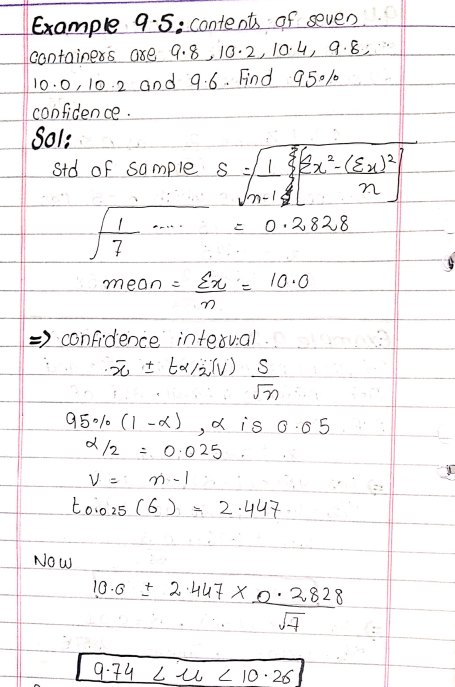 Example 9.5: contents of seven
containers are 9.8, 10.2, 10.4, 9.8,
10.0, 10.2 and 9.6. Find 95%
confidence.
Sol:
std of sample s = √1/n-1 [Σx² - (Σx)²/n]
√1/7 ..... = 0.2828
mean = Σx/n = 10.0
=> confidence interval.
x̄ ± tα/2(v) s/√n
95% (1-α), α is 0.05
α/2 = 0.025
v = n-1
t0.025 (6) = 2.447
Now
10.0 ± 2.447 × 0.2828/√7
9.74 < u < 10.26